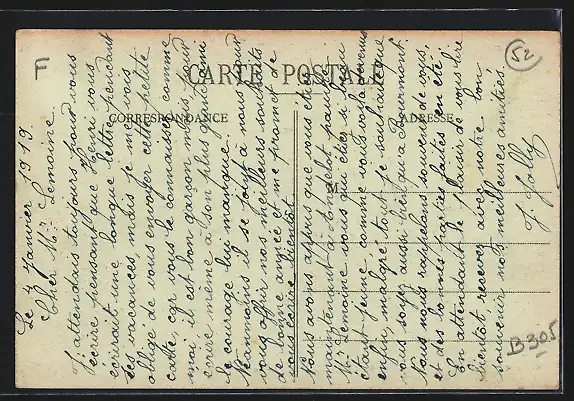 CARTE POSTALE
CORRESPONDANCE
ADRESSE
F
52
B305
Le 4 Janvier 1919
Cher Mr Lemaine
J'attendais toujours pour vous
écrire pensant que Henri vous
écrirait une longue lettre pendant
ses vacances mais je me vois
obligé de vous envoyer cette petite
carte car vous le connaissez comme
moi il est bon garçon mais pour
écrire même à son plus grand ami
le courage lui manque.
Néanmoins il se joint à nous pour
vous offrir nos meilleurs souhaits
de bonne année et me promet de
vous écrire bientôt.
Nous avons appris que vous étiez
maintenant à pauvre
Mr Lemaine vous qui étiez si bien
étant jeune comme vous voilà revenu
enfin malgré tout je souhaite que
vous soyez aussi bien qu'à Bourmont.
Nous nous rappelons souvent de vous,
et des bonnes parties faites en été!
En attendant le plaisir de vous lire
bientôt recevez avec notre bon
souvenir nos meilleures amitiés.
J. Jolly